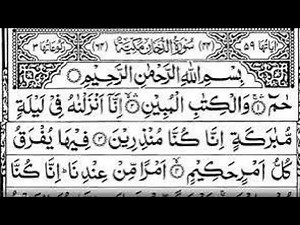 اٰیَاتُهَا ٥٩ (٤٤) سُوْرَةُ الدُّخَانِ مَكِّیَّةٌ (٦٤) رُكُوْعَاتُهَا ٣
بِسْمِ اللّٰهِ الرَّحْمٰنِ الرَّحِیْمِ
حٰمٓ ۝١ وَالْكِتٰبِ الْمُبِیْنِ ۝٢ اِنَّاۤ اَنْزَلْنٰهُ فِیْ لَیْلَةٍ
مُّبٰرَكَةٍ اِنَّا كُنَّا مُنْذِرِیْنَ ۝٣ فِیْهَا یُفْرَقُ
كُلُّ اَمْرٍ حَكِیْمٍ ۝٤ اَمْرًا مِّنْ عِنْدِنَا ؕ اِنَّا كُنَّا